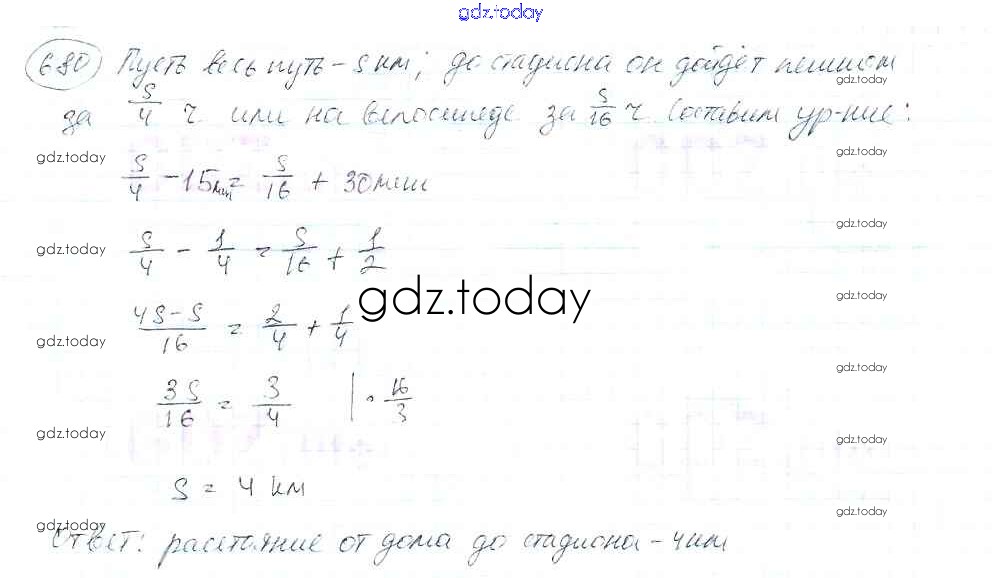 gdz.today
680 Пусть весь путь - S км; до стадиона он дойдёт пешком
gdz.today
за S/4 ч или на велосипеде за S/16 ч. Составим ур-ние:
gdz.today
gdz.today
gdz.today
S/4 - 15мин = S/16 + 30мин
gdz.today
gdz.today
S/4 - 1/4 = S/16 + 1/2
gdz.today
gdz.today
4S-S/16 = 2/4 + 1/4
gdz.today
gdz.today
3S/16 = 3/4 | · 16/3
gdz.today
gdz.today
S = 4 км
gdz.today
gdz.today
Ответ: расстояние от дома до стадиона - 4км